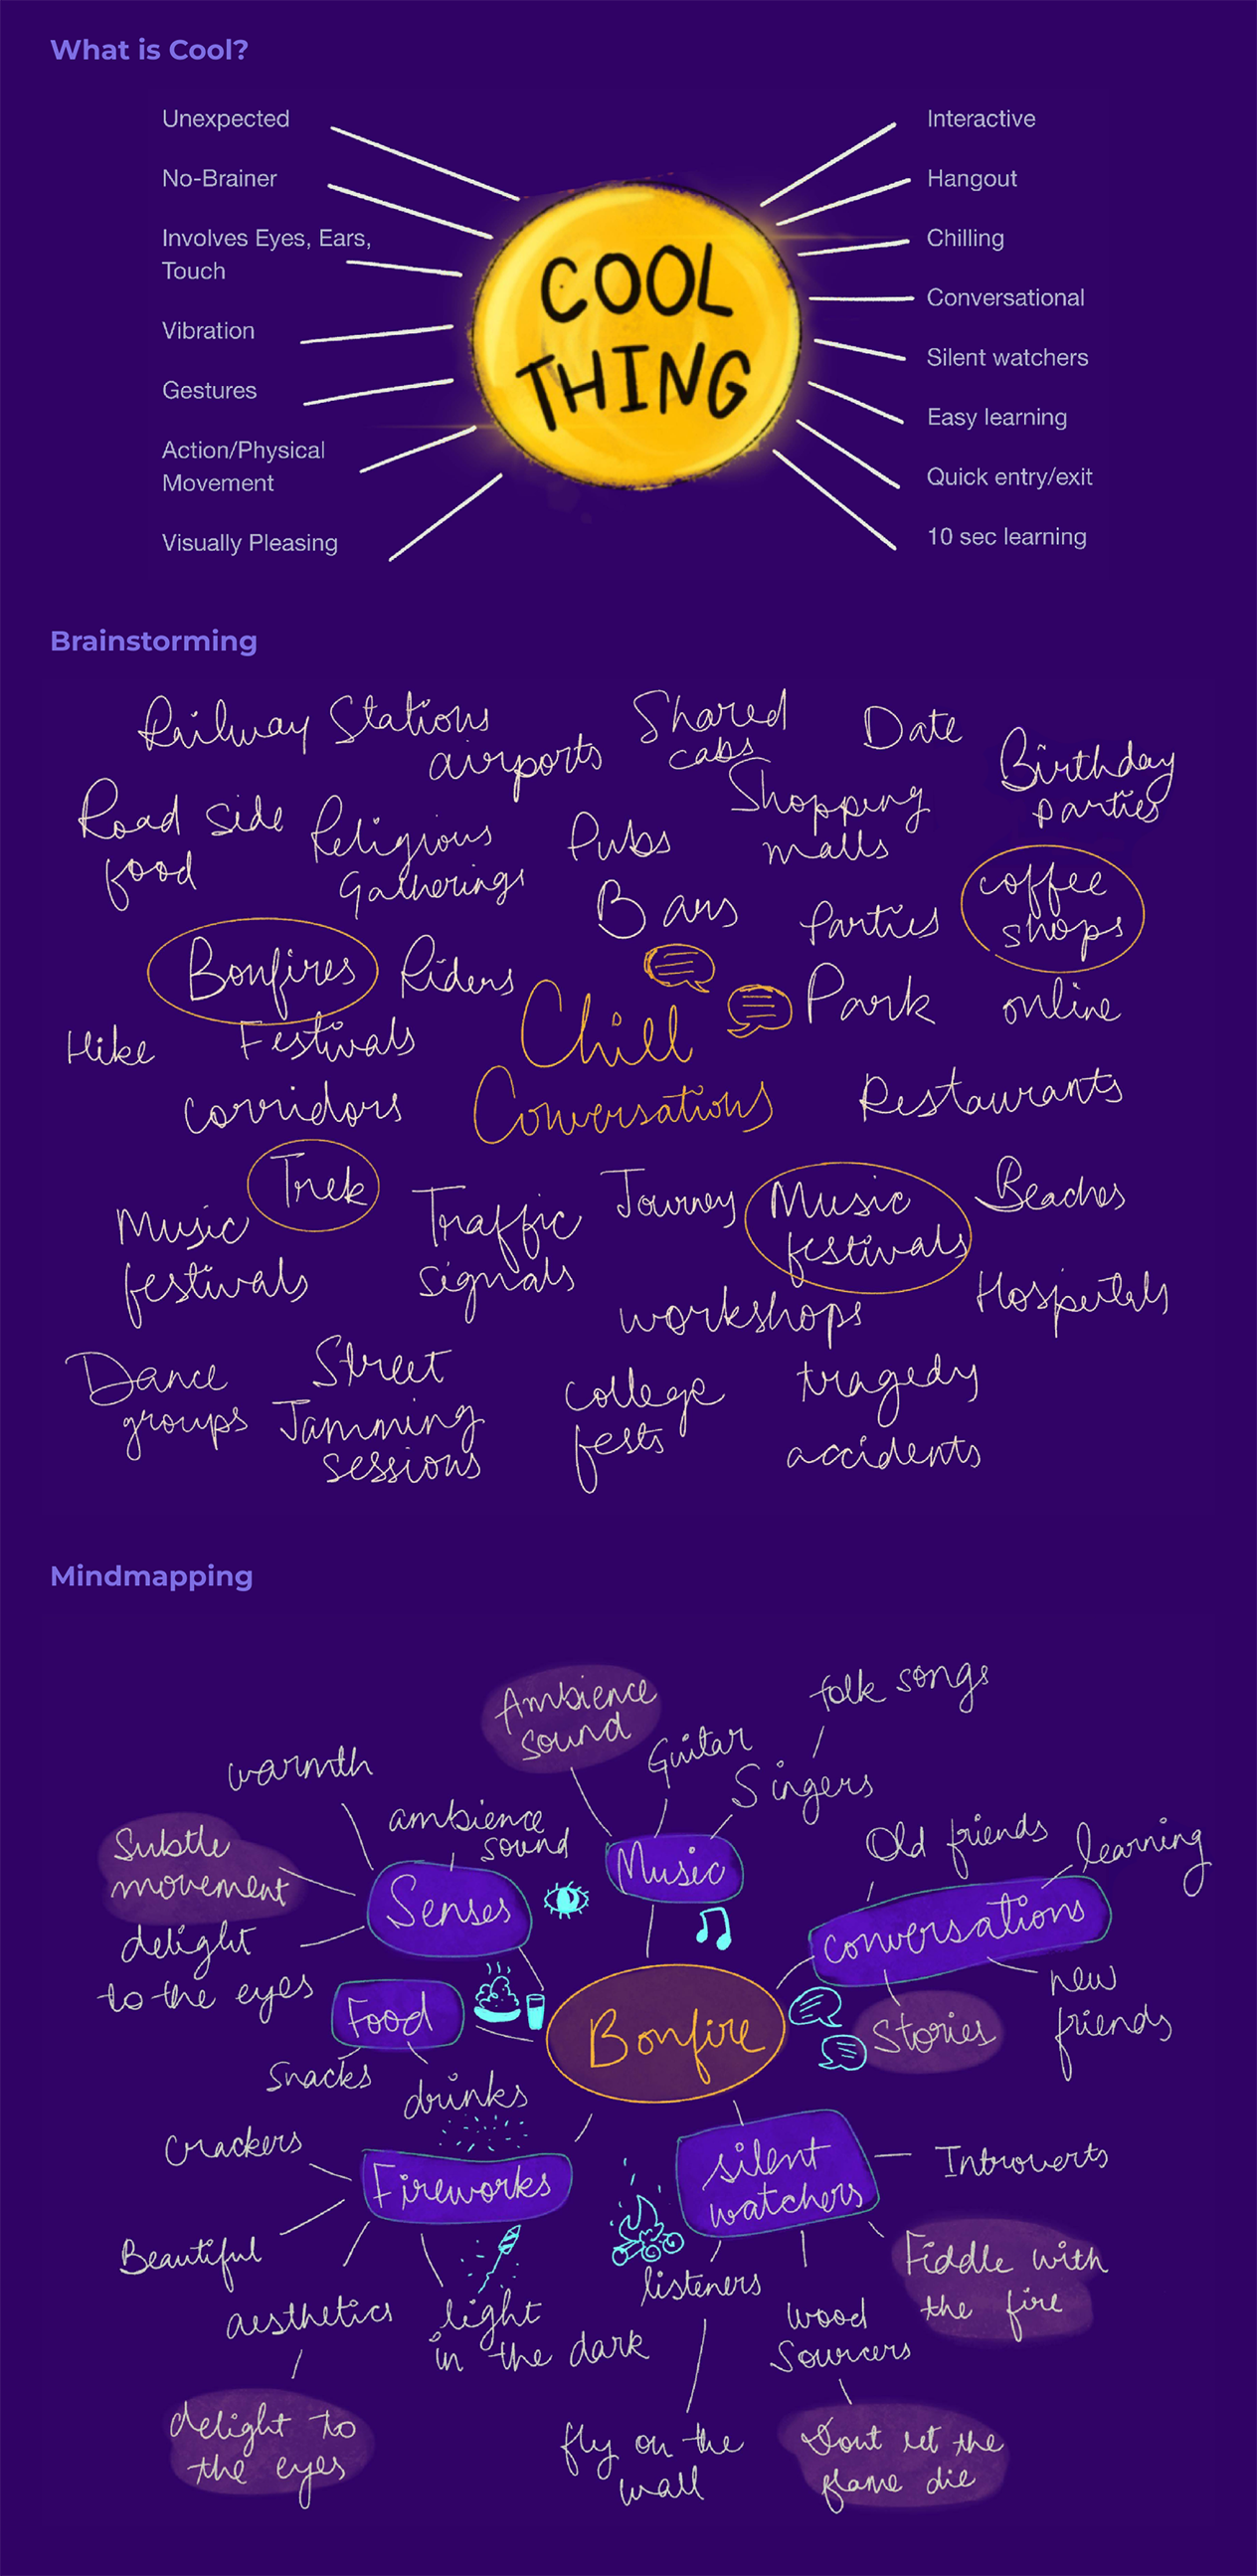 What is Cool?
Unexpected
No-Brainer
Involves Eyes, Ears,
Touch
Vibration
Gestures
Action/Physical
Movement
Visually Pleasing
COOL
THING
Interactive
Hangout
Chilling
Conversational
Silent watchers
Easy learning
Quick entry/exit
10 sec learning
Brainstorming
Railway Stations
airports
Shared
cabs
Date
Birthday
parties
Road side
food
Religious
Gatherings
Pubs
Shopping
malls
Bars
Parties
coffee
shops
Bonfires
Riders
Chill
Conversations
Park
online
Hike
Festivals
corridors
Restaurants
Trek
Music
festivals
Traffic
signals
Journey
Music
festivals
Beaches
Hospitals
workshops
Dance
groups
Street
Jamming
sessions
college
fests
tragedy
accidents
Mindmapping
Ambience
sound
Guitar
folk songs
Singers
warmth
ambience
sound
Subtle
movement
delight
to the eyes
Senses
Music
Old friends
learning
conversations
new
friends
Stories
Food
Snacks
drinks
Bonfire
Crackers
Fireworks
Beautiful
aesthetics
light
in the dark
delight to
the eyes
silent
watchers
Introverts
Fiddle with
the fire
listeners
wood
Sourcers
fly on the
wall
Dont let the
flame die